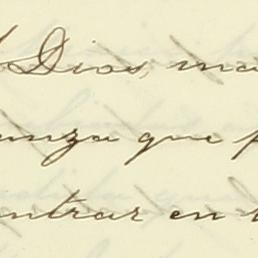 Dios, ma
anza que p
entrar en